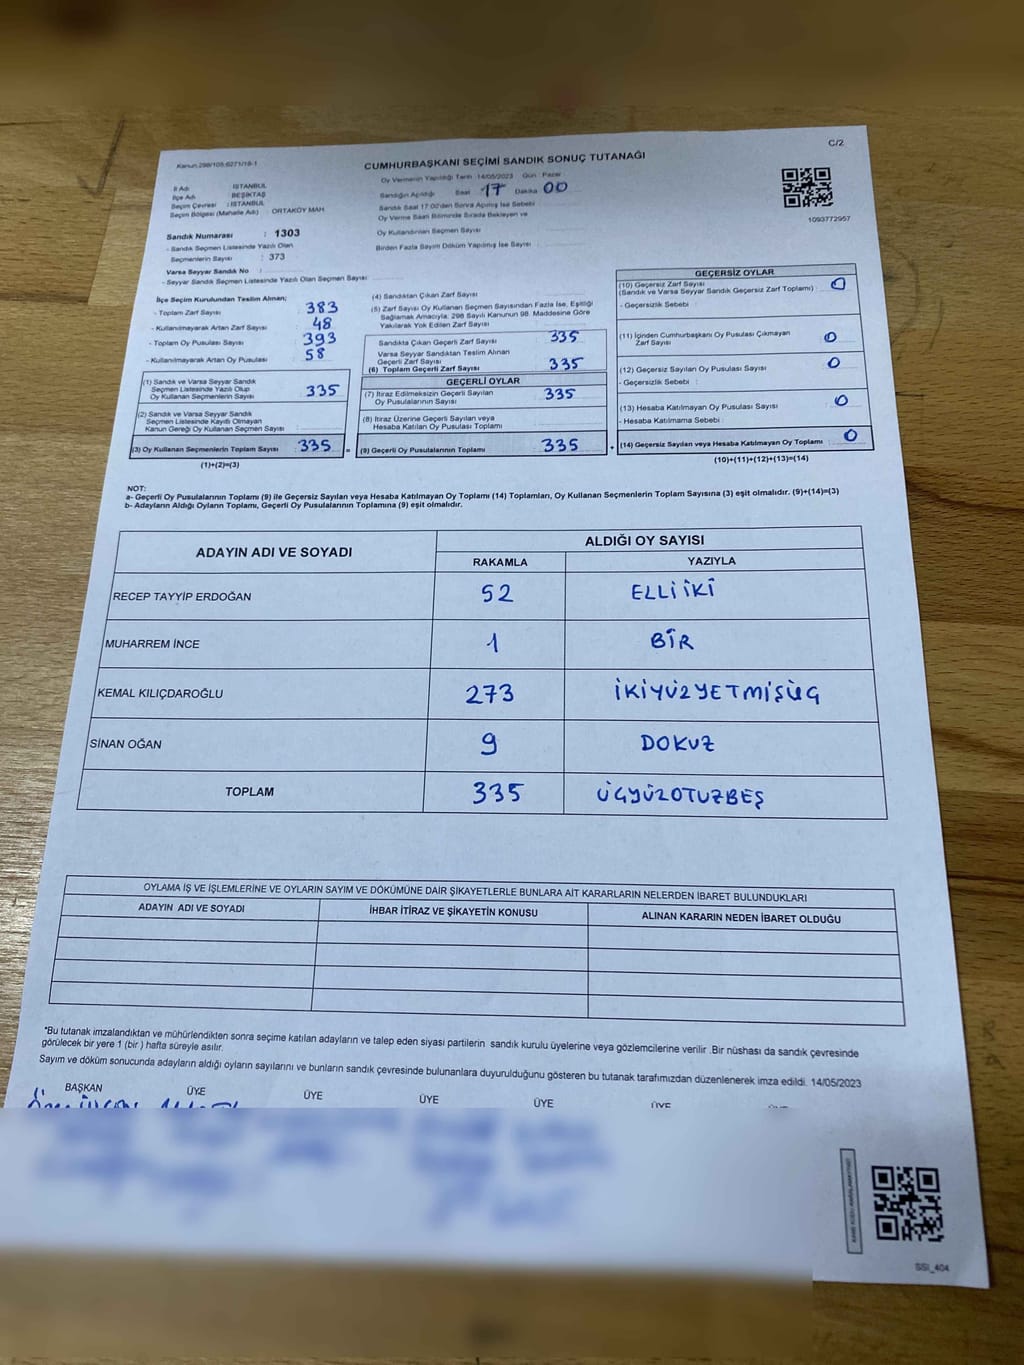 Kanun:298/105:6271/18-1
CUMHURBAŞKANI SEÇİMİ SANDIK SONUÇ TUTANAĞI
C/2
İl Adı : İSTANBUL
İlçe Adı : BEŞİKTAŞ
Seçim Çevresi : İSTANBUL
Seçim Bölgesi (Mahalle Adı) : ORTAKÖY MAH.
Oy Vermenin Yapıldığı Tarih : 14/05/2023 Gün : Pazar
Sandığın Açıldığı Saat 17 Dakika 00
Sandık Saat 17:00'den Sonra Açılmış İse Sebebi
Oy Verme Saati Bitiminde Sırada Bekleyen ve
Oy Kullandırılan Seçmen Sayısı
Birden Fazla Sayım Döküm Yapılmış İse Sayısı
1093772957
Sandık Numarası : 1303
- Sandık Seçmen Listesinde Yazılı Olan
Seçmenlerin Sayısı : 373
Varsa Seyyar Sandık No :
- Seyyar Sandık Seçmen Listesinde Yazılı Olan Seçmen Sayısı
İlçe Seçim Kurulundan Teslim Alınan;
- Toplam Zarf Sayısı : 383
- Kullanılmayarak Artan Zarf Sayısı : 48
- Toplam Oy Pusulası Sayısı : 393
- Kullanılmayarak Artan Oy Pusulası : 58
(1) Sandık ve Varsa Seyyar Sandık
Seçmen Listesinde Yazılı Olup
Oy Kullanan Seçmenlerin Sayısı : 335
(2) Sandık ve Varsa Seyyar Sandık
Seçmen Listesinde Kayıtlı Olmayan
Kanun Gereği Oy Kullanan Seçmen Sayısı :
(3) Oy Kullanan Seçmenlerin Toplam Sayısı : 335 =
(1)+(2)=(3)
(4) Sandıktan Çıkan Zarf Sayısı
(5) Zarf Sayısı Oy Kullanan Seçmen Sayısından Fazla İse, Eşitliği
Sağlamak Amacıyla; 298 Sayılı Kanunun 98. Maddesine Göre
Yakılarak Yok Edilen Zarf Sayısı
Sandıkta Çıkan Geçerli Zarf Sayısı : 335
Varsa Seyyar Sandıktan Teslim Alınan
Geçerli Zarf Sayısı
(6) Toplam Geçerli Zarf Sayısı : 335
GEÇERLİ OYLAR
(7) İtiraz Edilmeksizin Geçerli Sayılan
Oy Pusulalarının Sayısı : 335
(8) İtiraz Üzerine Geçerli Sayılan veya
Hesaba Katılan Oy Pusulası Toplamı :
(9) Geçerli Oy Pusulalarının Toplamı : 335 +
GEÇERSİZ OYLAR
(10) Geçersiz Zarf Sayısı
(Sandık ve Varsa Seyyar Sandık Geçersiz Zarf Toplamı) : 0
- Geçersizlik Sebebi :
(11) İçinden Cumhurbaşkanı Oy Pusulası Çıkmayan
Zarf Sayısı : 0
(12) Geçersiz Sayılan Oy Pusulası Sayısı : 0
- Geçersizlik Sebebi :
(13) Hesaba Katılmayan Oy Pusulası Sayısı : 0
- Hesaba Katılmama Sebebi :
(14) Geçersiz Sayılan veya Hesaba Katılmayan Oy Toplamı : 0
(10)+(11)+(12)+(13)=(14)
NOT:
a- Geçerli Oy Pusulalarının Toplamı (9) ile Geçersiz Sayılan veya Hesaba Katılmayan Oy Toplamı (14) Toplamları, Oy Kullanan Seçmenlerin Toplam Sayısına (3) eşit olmalıdır. (9)+(14)=(3)
b- Adayların Aldığı Oyların Toplamı, Geçerli Oy Pusulalarının Toplamına (9) eşit olmalıdır.
ADAYIN ADI VE SOYADI
ALDIĞI OY SAYISI
RAKAMLA YAZIYLA
RECEP TAYYİP ERDOĞAN 52 ELLİİKİ
MUHARREM İNCE 1 BİR
KEMAL KILIÇDAROĞLU 273 İKİYÜZYETMİŞÜÇ
SİNAN OĞAN 9 DOKUZ
TOPLAM 335 ÜÇYÜZOTUZBEŞ
OYLAMA İŞ VE İŞLEMLERİNE VE OYLARIN SAYIM VE DÖKÜMÜNE DAİR ŞİKAYETLERLE BUNLARA AİT KARARLARIN NELERDEN İBARET BULUNDUKLARI
ADAYIN ADI VE SOYADI İHBAR İTİRAZ VE ŞİKAYETİN KONUSU ALINAN KARARIN NEDEN İBARET OLDUĞU
*Bu tutanak imzalandıktan ve mühürlendikten sonra seçime katılan adayların ve talep eden siyasi partilerin sandık kurulu üyelerine veya gözlemcilerine verilir .Bir nüshası da sandık çevresinde
görülecek bir yere 1 (bir ) hafta süreyle asılır.
Sayım ve döküm sonucunda adayların aldığı oyların sayılarını ve bunların sandık çevresinde bulunanlara duyurulduğunu gösteren bu tutanak tarafımızdan düzenlenerek imza edildi. 14/05/2023
BAŞKAN ÜYE ÜYE ÜYE ÜYE ÜYE
SSI_404